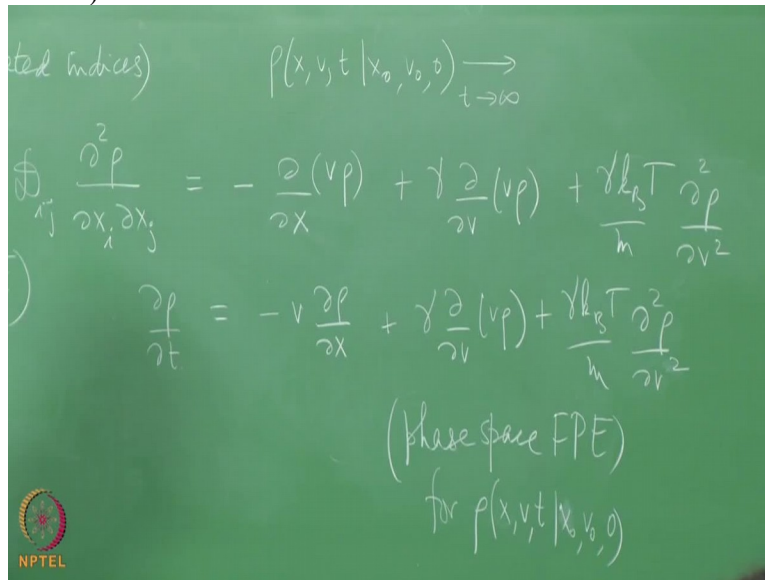 ated indices) ρ(x, v, t | x₀, v₀, 0) ⟶ t→∞
𝔻ᵢⱼ ∂²ρ/∂xᵢ∂xⱼ = − ∂/∂x (vρ) + γ ∂/∂v (vρ) + γk_BT/m ∂²ρ/∂v²
)
∂ρ/∂t = − v ∂ρ/∂x + γ ∂/∂v (vρ) + γk_BT/m ∂²ρ/∂v²
(phase space FPE)
for ρ(x, v, t | x₀, v₀, 0)
NPTEL